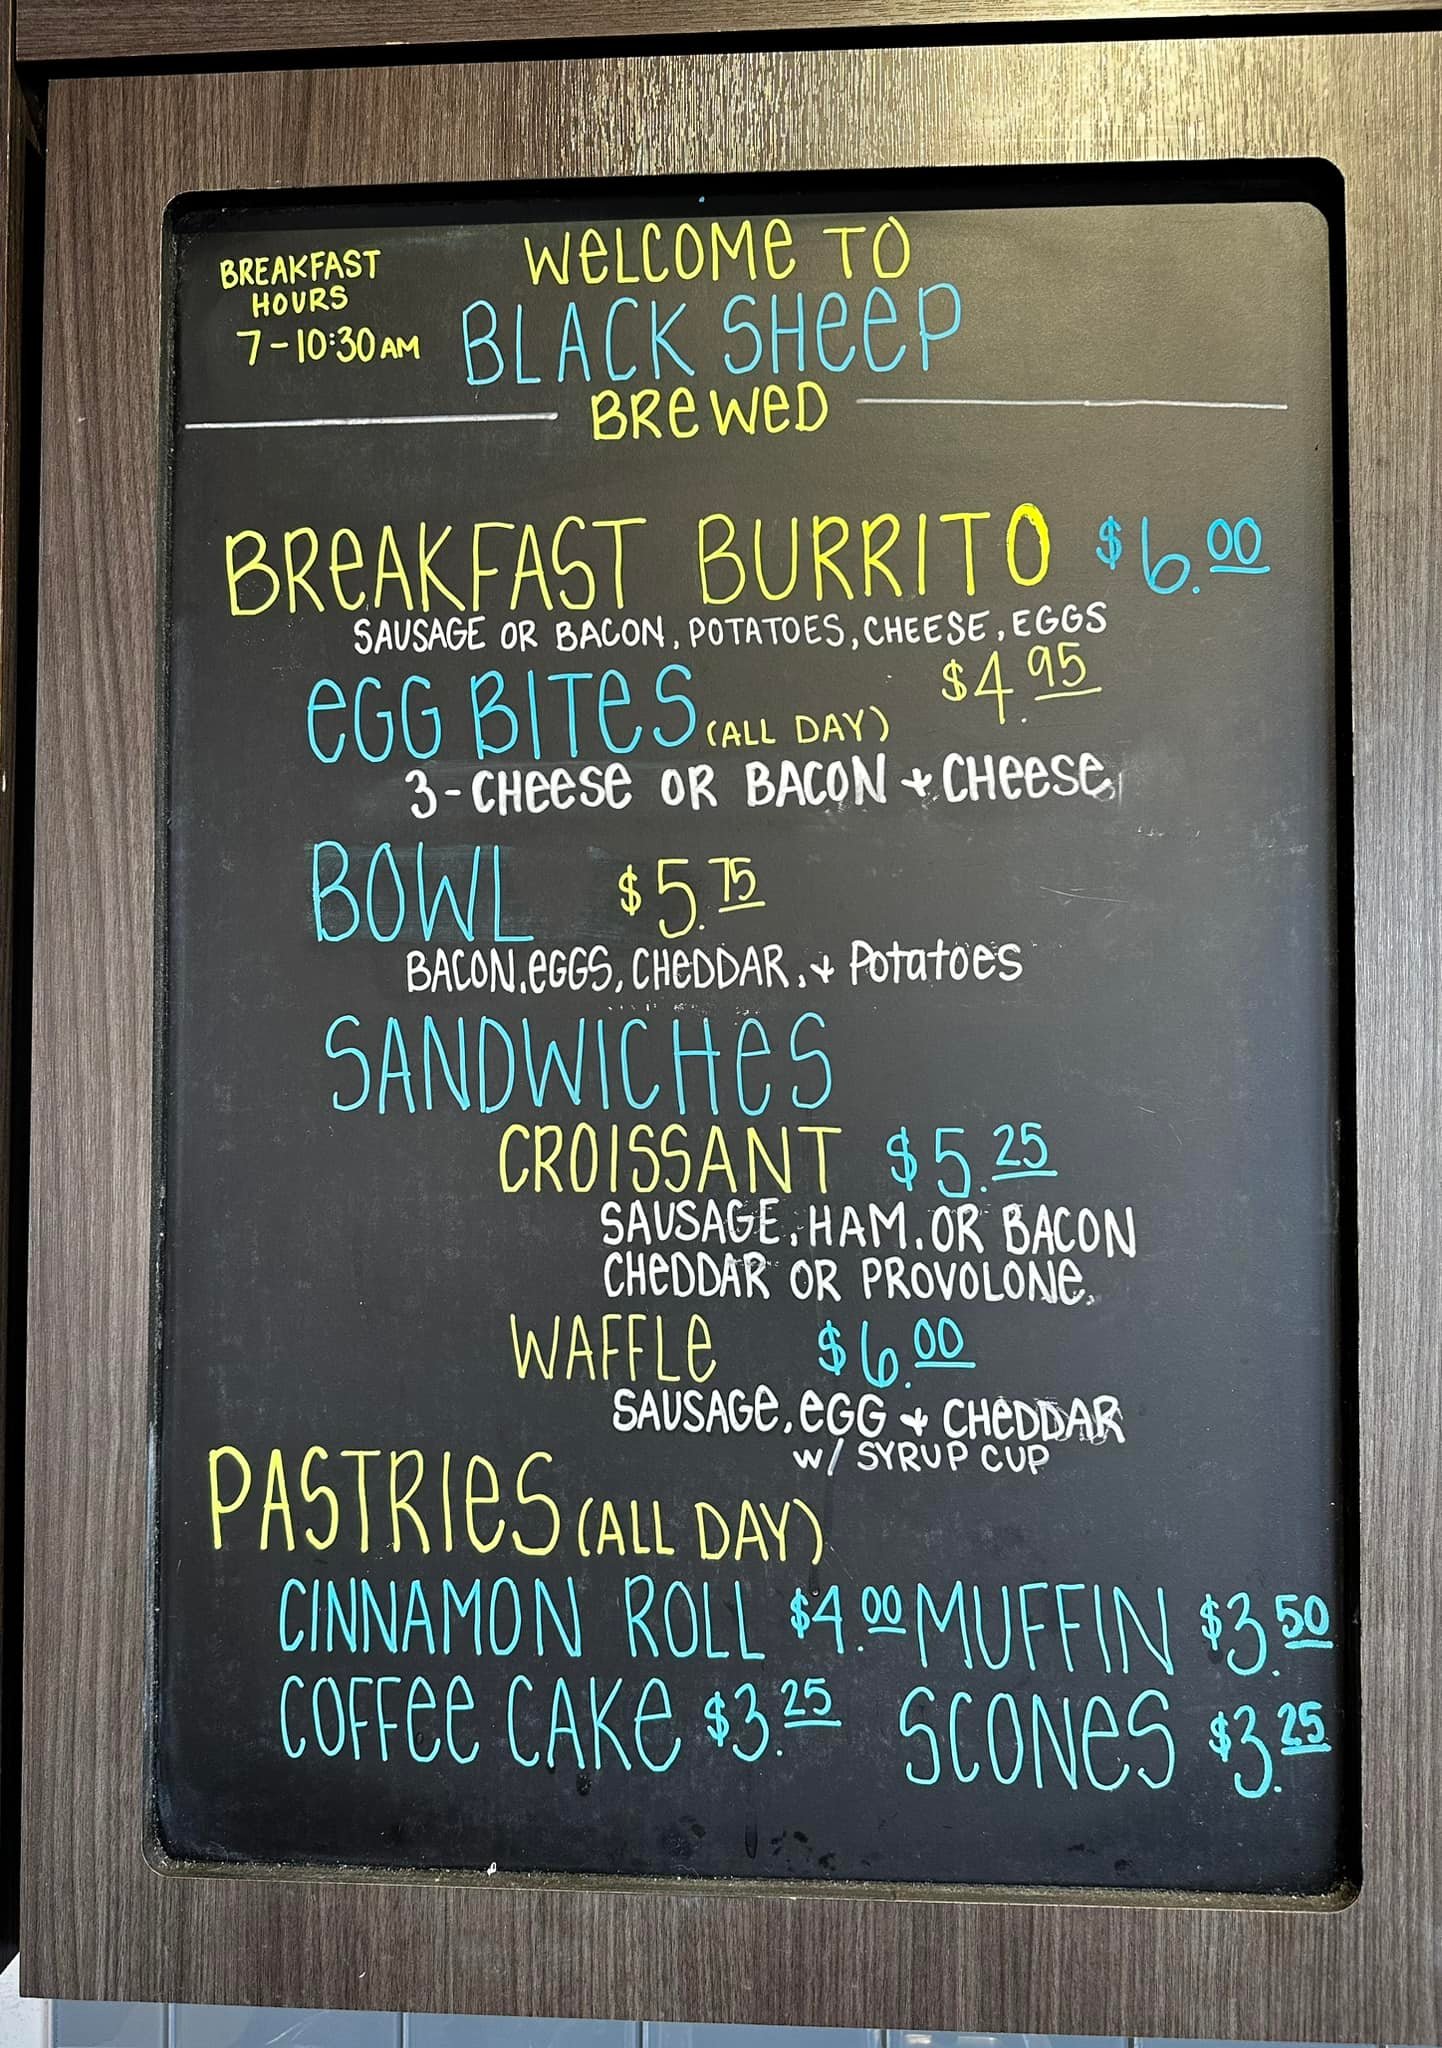 BREAKFAST
HOURS
7-10:30AM
WELCOME TO
BLACK SHEEP
BREWED
BREAKFAST BURRITO $6.00
SAUSAGE OR BACON, POTATOES, CHEESE, EGGS
EGG BITES (ALL DAY) $4.95
3-CHEESE OR BACON + CHEESE
BOWL $5.75
BACON, EGGS, CHEDDAR, + POTATOES
SANDWICHES
CROISSANT $5.25
SAUSAGE, HAM, OR BACON
CHEDDAR OR PROVOLONE.
WAFFLE $6.00
SAUSAGE, EGG + CHEDDAR
W/ SYRUP CUP
PASTRIES (ALL DAY)
CINNAMON ROLL $4.00 MUFFIN $3.50
COFFEE CAKE $3.25 SCONES $3.25